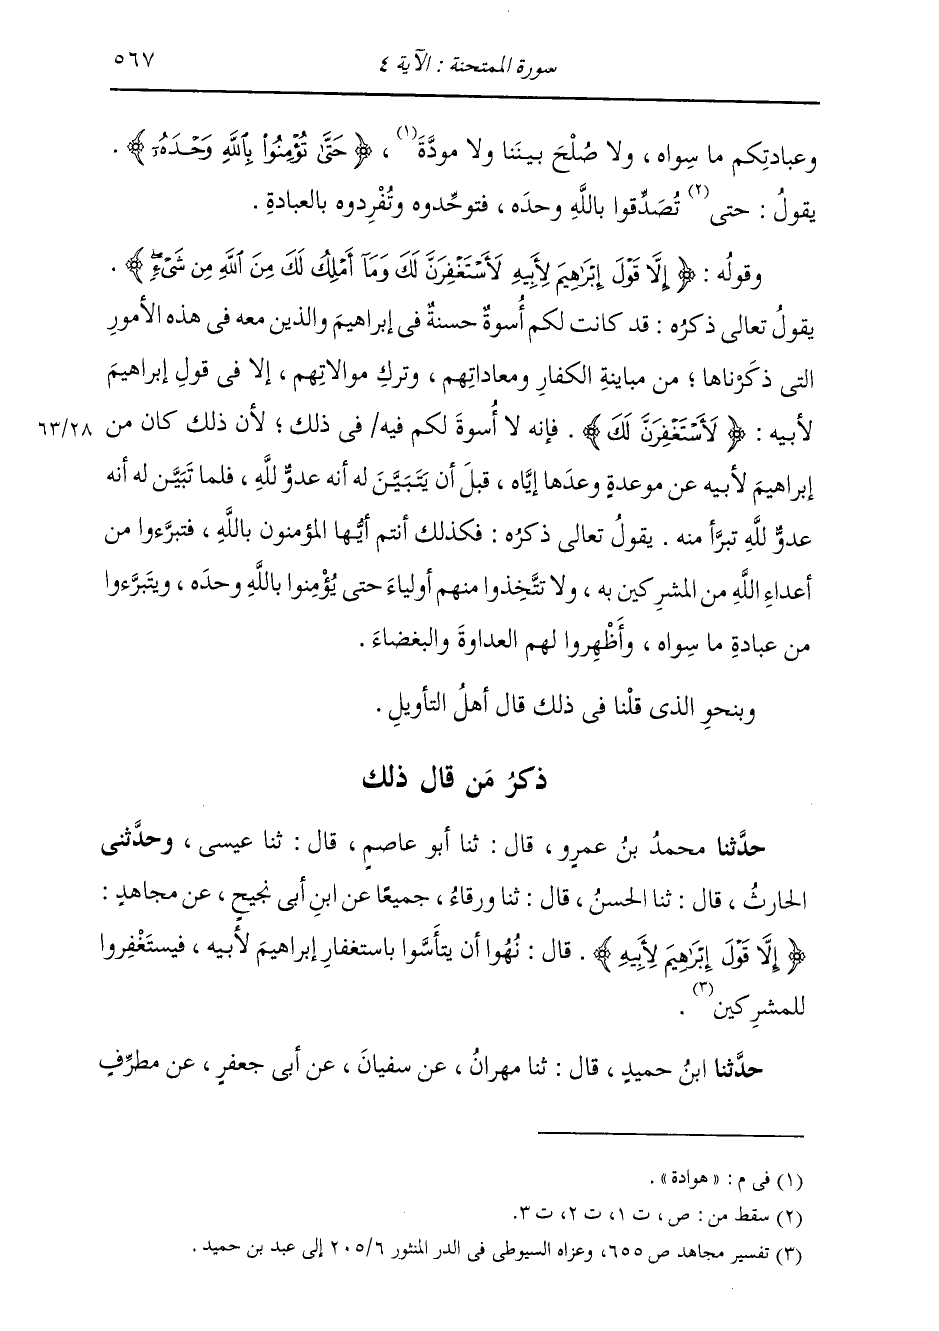 سورة الممتحنة : الآية ٤
٥٦٧
وعبادتِكم ما سِواه ، ولا صُلْحَ بينَنا ولا مودَّةَ(١) ، ﴿ حَتَّىٰ تُؤْمِنُوا۟ بِٱللَّهِ وَحْدَهُۥٓ ﴾ .
يقولُ : حتى(٢) تُصَدِّقوا باللَّهِ وحدَه ، فتوحِّدوه وتُفْرِدوه بالعبادةِ .
وقولُه : ﴿ إِلَّا قَوْلَ إِبْرَٰهِيمَ لِأَبِيهِ لَأَسْتَغْفِرَنَّ لَكَ وَمَآ أَمْلِكُ لَكَ مِنَ ٱللَّهِ مِن شَىْءٍۖ ﴾ .
يقولُ تعالى ذكرُه : قد كانت لكم أُسوةٌ حسنةٌ فى إبراهيمَ والذين معه فى هذه الأمورِ
التى ذكَرْناها ؛ من مباينةِ الكفارِ ومعاداتِهم ، وتركِ موالاتِهم ، إلا فى قولِ إبراهيمَ
لأبيه : ﴿ لَأَسْتَغْفِرَنَّ لَكَ ﴾ . فإنه لا أُسوةَ لكم فيه/ فى ذلك ؛ لأن ذلك كان من ٦٣/٢٨
إبراهيمَ لأبيه عن موعدةٍ وعدَها إيَّاه ، قبلَ أن يَتَبَيَّنَ له أنه عدوٌّ للَّهِ ، فلما تَبَيَّن له أنه
عدوٌّ للَّهِ تبرَّأ منه . يقولُ تعالى ذكرُه : فكذلك أنتم أيُّها المؤمنون باللَّهِ ، فتبرَّءوا من
أعداءِ اللَّهِ من المشرِكين به ، ولا تتَّخِذوا منهم أولياءَ حتى يُؤْمِنوا باللَّهِ وحدَه ، ويتَبرَّءوا
من عبادةِ ما سِواه ، وأَظْهِروا لهم العداوةَ والبغضاءَ .
وبنحوِ الذى قلْنا فى ذلك قال أهلُ التأويلِ .
ذكرُ مَن قال ذلك
حدَّثنا محمدُ بنُ عمرٍو ، قال : ثنا أبو عاصمٍ ، قال : ثنا عيسى ، وحدَّثنى
الحارثُ ، قال : ثنا الحسنُ ، قال : ثنا ورقاءُ ، جميعًا عن ابنِ أبى نجيحٍ ، عن مجاهدٍ :
﴿ إِلَّا قَوْلَ إِبْرَٰهِيمَ لِأَبِيهِ ﴾ . قال : نُهُوا أن يتأَسَّوا باستغفارِ إبراهيمَ لأبيه ، فيستَغْفِروا
للمشرِكين(٣) .
حدَّثنا ابنُ حميدٍ ، قال : ثنا مهرانُ ، عن سفيانَ ، عن أبى جعفرٍ ، عن مطرِّفٍ
(١) فى م : «هوادة» .
(٢) سقط من : ص ، ت ١، ت ٢، ت ٣.
(٣) تفسير مجاهد ص ٦٥٥، وعزاه السيوطى فى الدر المنثور ٢٠٥/٦ إلى عبد بن حميد .